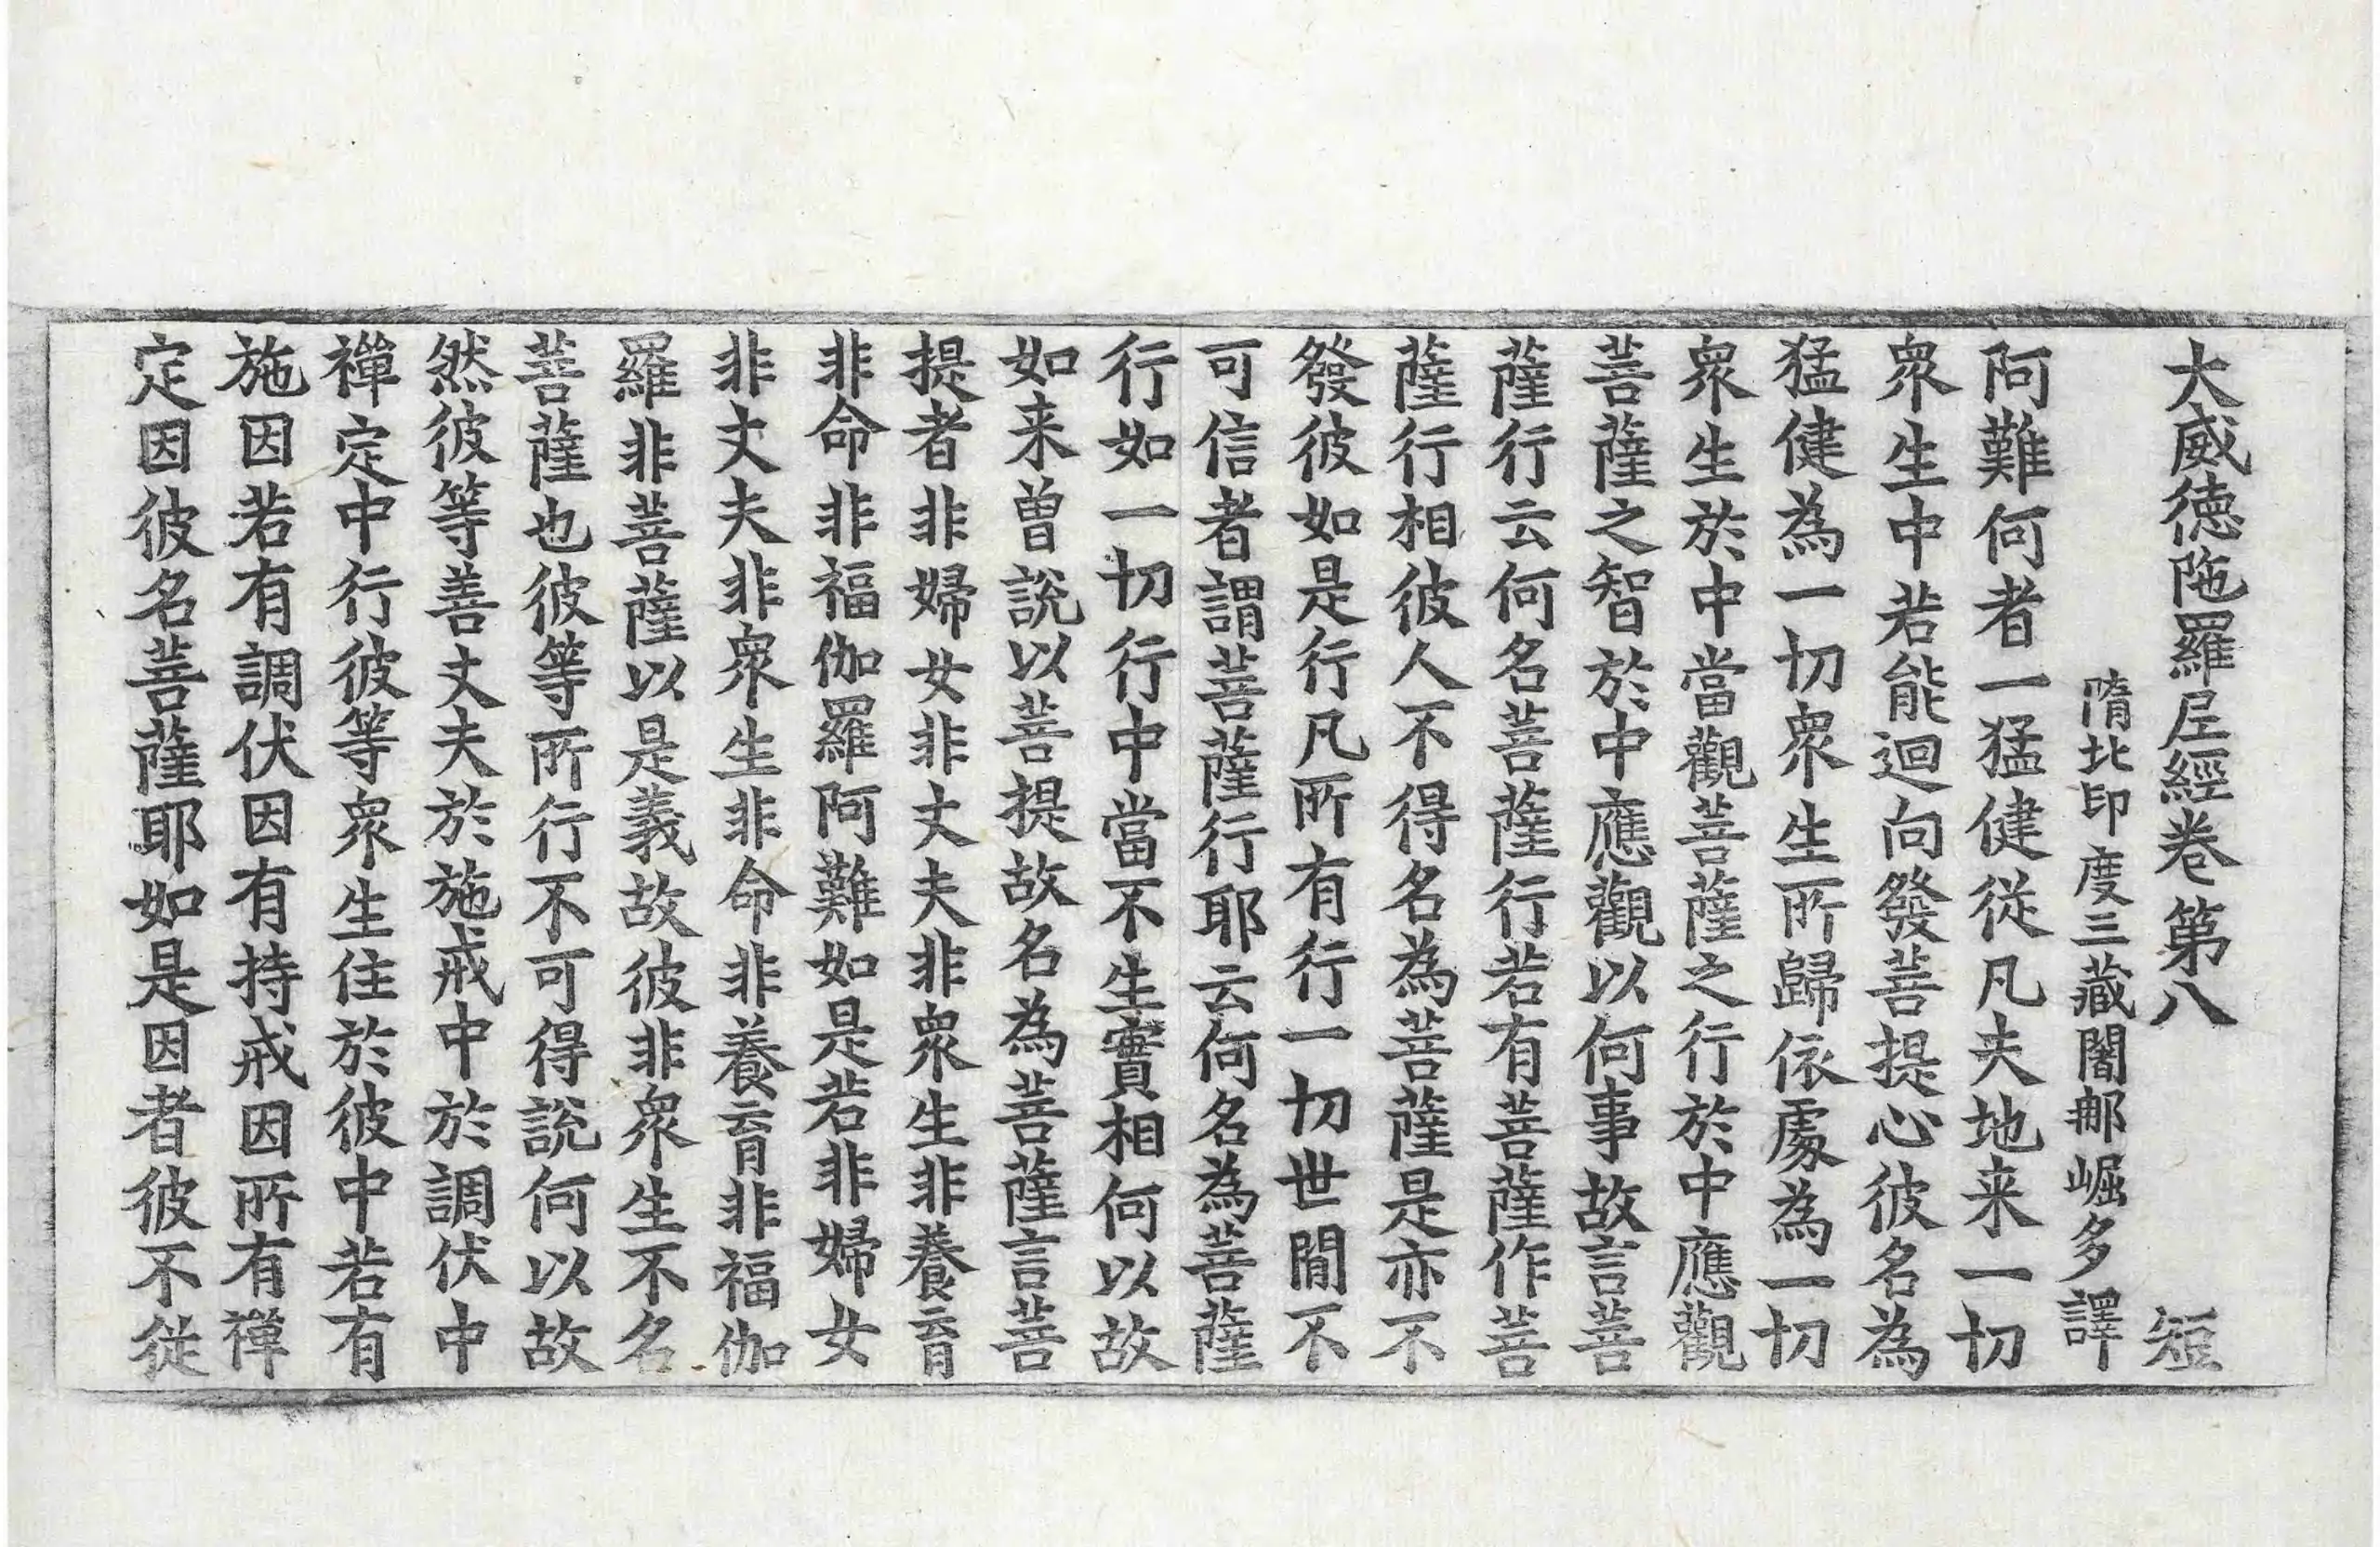 大威徳陁羅尼經卷第八 短
隋北印度三藏闍那崛多譯
阿難何者一猛健從凡夫地来一切
衆生中若能迴向發菩提心彼名為
猛健為一切衆生所歸依處為一切
衆生於中當觀菩薩之行於中應觀
菩薩之智於中應觀以何事故言菩
薩行云何名菩薩行若有菩薩作菩
薩行相彼人不得名為菩薩是亦不
發彼如是行凡所有行一切世間不
可信者謂菩薩行耶云何名為菩薩
行如一切行中當不生實相何以故
如来曾說以菩提故名為菩薩言菩
提者非婦女非丈夫非衆生非養育
非命非福伽羅阿難如是若非婦女
非丈夫非衆生非命非養育非福伽
羅非菩薩以是義故彼非衆生不名
菩薩也彼等所行不可得說何以故
然彼等善丈夫於施戒中於調伏中
禪定中行彼等衆生住於彼中若有
施因若有調伏因有持戒因所有禪
定因彼名菩薩耶如是因者彼不從